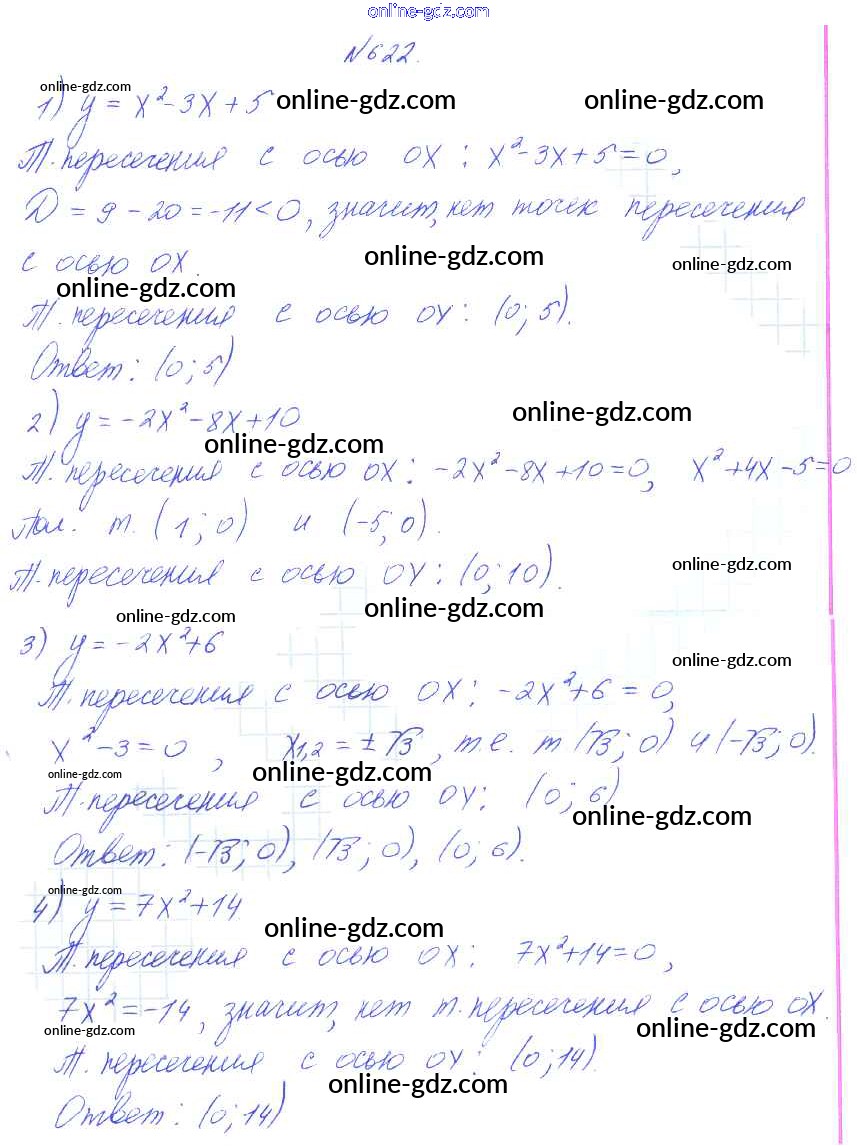 online-gdz.com
№622.
online-gdz.com
1) y = x²-3x+5 online-gdz.com online-gdz.com
Т. пересечения с осью OX : x²-3x+5=0,
D = 9 - 20 = -11 < 0, значит, нет точек пересечения
с осью OX. online-gdz.com online-gdz.com
online-gdz.com
Т. пересечения с осью OY : (0; 5).
Ответ: (0; 5)
2) y = -2x²-8x+10 online-gdz.com
online-gdz.com
Т. пересечения с осью OX: -2x²-8x+10=0, x²+4x-5=0
Пол. т. (1; 0) и (-5; 0).
Т. пересечения с осью OY: (0; 10). online-gdz.com
online-gdz.com online-gdz.com
3) y = -2x²+6
online-gdz.com
Т. пересечения с осью OX: -2x²+6 = 0,
x²-3=0, x1,2 = ±√3, т.е. т (√3; 0) и (-√3; 0).
online-gdz.com online-gdz.com
Т. пересечения с осью OY: (0; 6)
online-gdz.com
Ответ: (-√3; 0), (√3; 0), (0; 6).
online-gdz.com
4) y = 7x²+14
online-gdz.com
Т. пересечения с осью OX: 7x²+14=0,
7x²=-14, значит, нет т. пересечения с осью OX.
online-gdz.com online-gdz.com
Т. пересечения с осью OY: (0; 14).
online-gdz.com
Ответ: (0; 14)